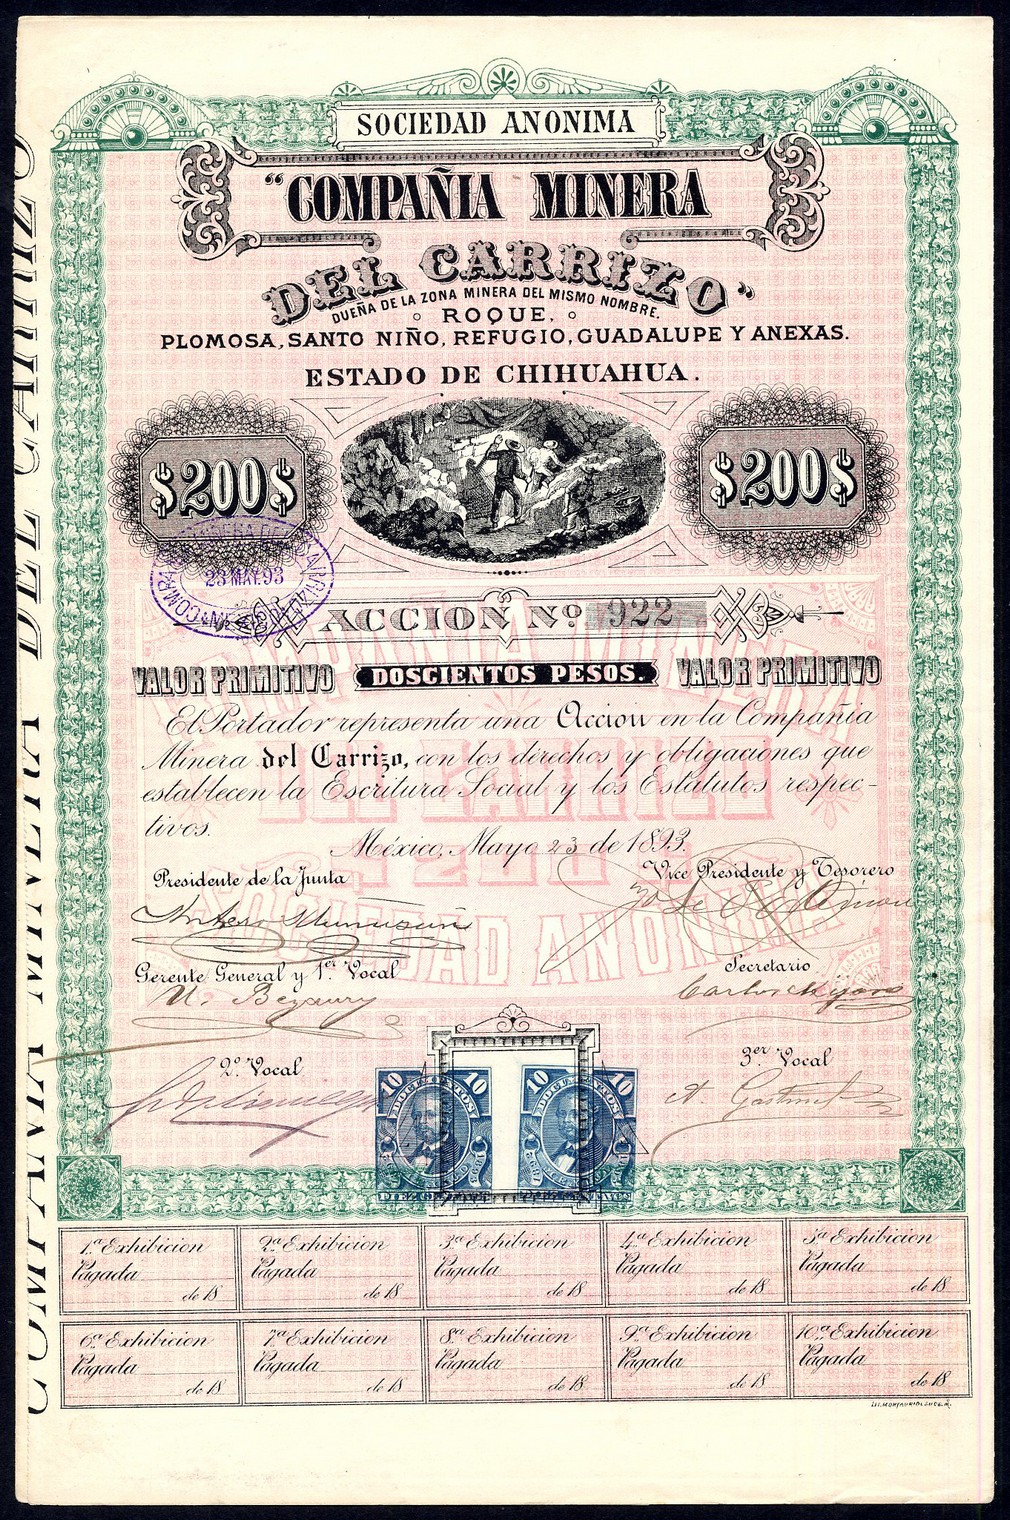 SOCIEDAD ANONIMA
"COMPAÑIA MINERA
DEL CARRIZO"
DUEÑA DE LA ZONA MINERA DEL MISMO NOMBRE.
ROQUE,
PLOMOSA, SANTO NIÑO, REFUGIO, GUADALUPE Y ANEXAS.
ESTADO DE CHIHUAHUA.
$200$ $200$
23 MAY. 93
ACCION Nº 922
VALOR PRIMITIVO DOSCIENTOS PESOS. VALOR PRIMITIVO
El Portador representa una Accion en la Compañia
Minera del Carrizo, con los derechos y obligaciones que
establecen la Escritura Social y los Estatutos respec-
tivos.
México, Mayo 23 de 1893.
Presidente de la Junta Vice Presidente y Tesorero
Gerente General y 1er Vocal Secretario
2º Vocal 3er Vocal
10 10 10 10
1ª Exhibicion 2ª Exhibicion 3ª Exhibicion 4ª Exhibicion 5ª Exhibicion
Pagada Pagada Pagada Pagada Pagada
de 18 de 18 de 18 de 18 de 18
6ª Exhibicion 7ª Exhibicion 8ª Exhibicion 9ª Exhibicion 10ª Exhibicion
Pagada Pagada Pagada Pagada Pagada
de 18 de 18 de 18 de 18 de 18
COMPAÑIA MINERA DEL CARRIZO
COMPAÑIA MINERA
DEL CARRIZO
SOCIEDAD ANONIMA